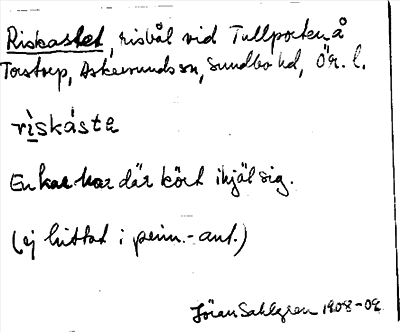 Riskastet, risbål vid Tullporten å
Torstorp, Askersunds sn, Sundbo hd, Ör. l.
riskástɐ
En kar har där kört ihjäl sig.
(ej hittat i penn.-ant.)
Jöran Sahlgren 1908-09